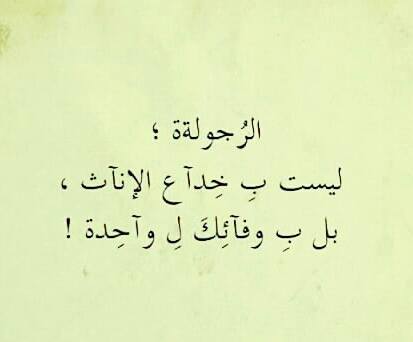 الرُجولةة ؛
ليست بِ خِدآع الإنآث ،
بل بِ وفآئِكَ لِ وآحِدة !